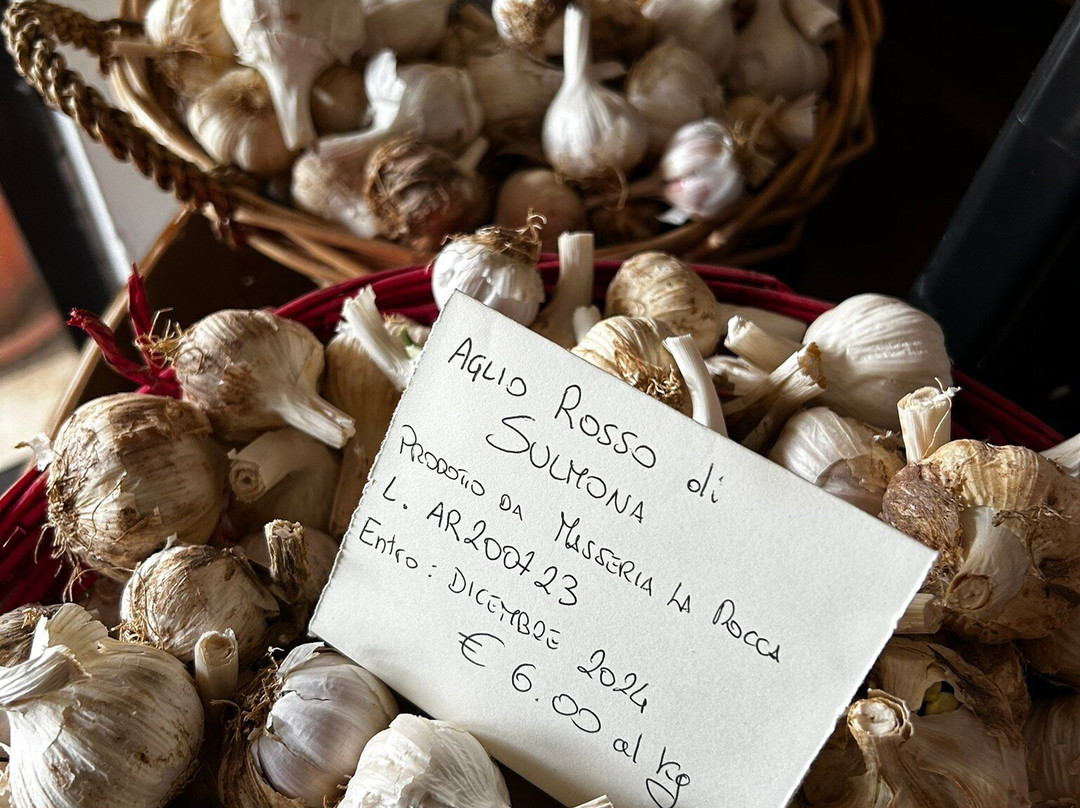 AGLIO ROSSO di
SULMONA
PRODOTTO DA MASSERIA LA ROCCA
L. AR200723
Entro: DICEMBRE 2024
€ 6.00 al kg